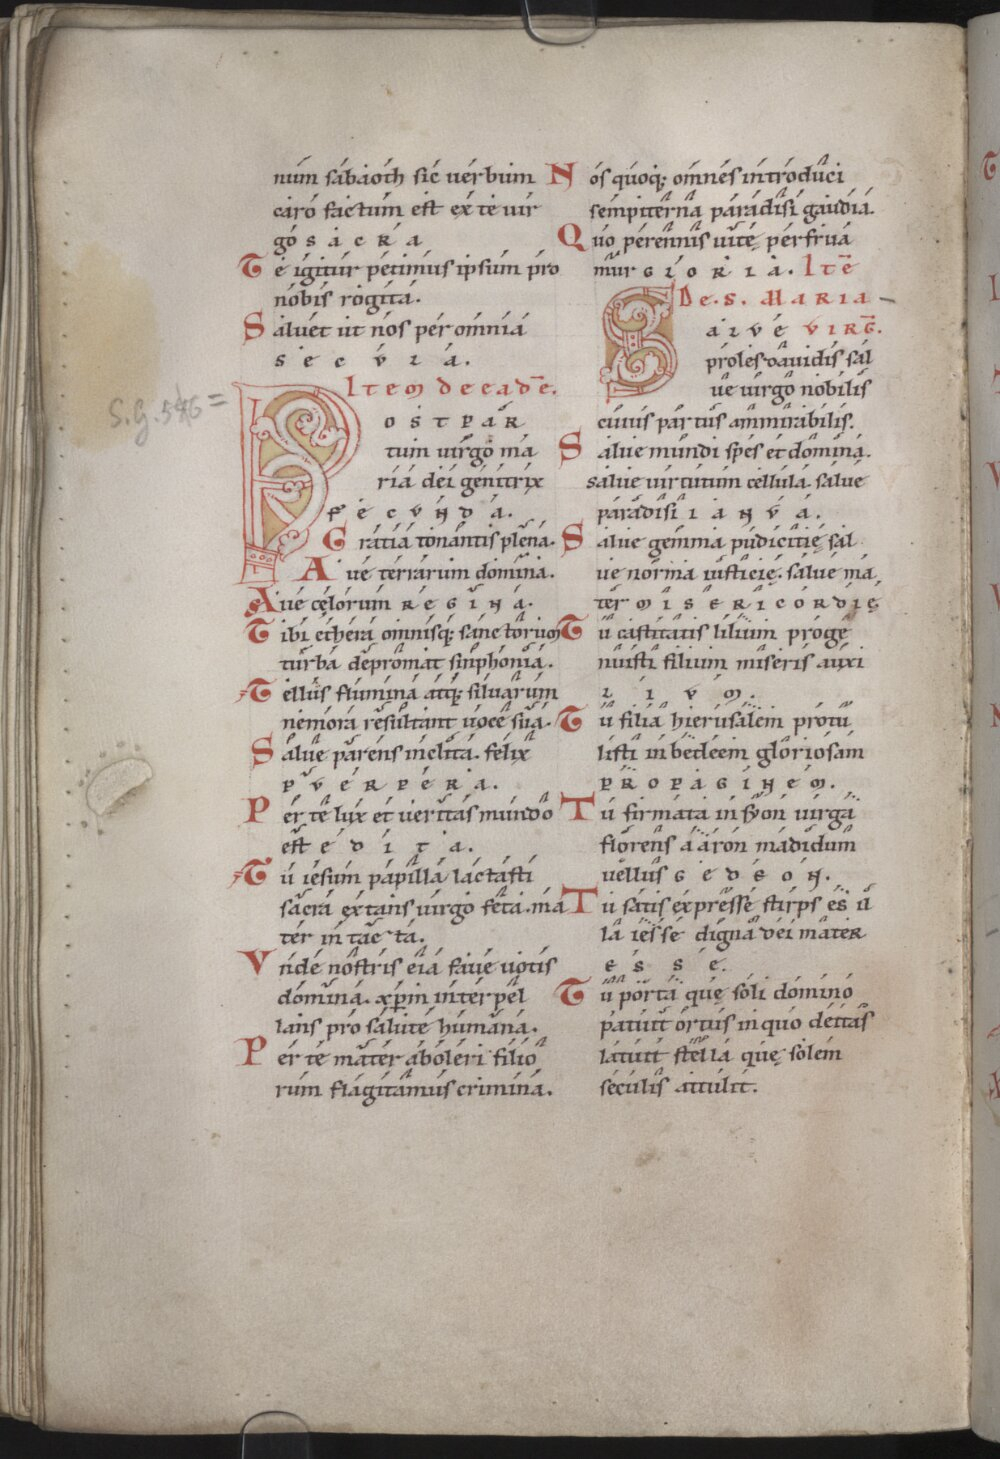 num sabaoth sic uerbum
caro factum est ex te uir
go sacra
Te igitur petimus ipsum pro
nobis rogita.
Saluet ut nos per omnia
secula.
Item de eadē.
Post par
tum uirgo ma
ria dei genitrix
fecunda.
Gratia tonantis plena.
Aue terrarum domina.
Aue cęlorum regina.
Tibi ethera omnisq; sanctorum
turba depromat simphonia.
Tellus flumina atq; siluarum
nemora resultant uoce sua.
Salue parens inclita. felix
puerpera.
Per te lux et ueritas mundo
est edita.
Tu iesum papilla lactasti
sacra extans uirgo feta. ma
ter intacta.
Vnde nostris eia faue uotis
domina. xp̄m interpel
lans pro salute humana.
Per te mater aboleri filio
rum flagitamus crimina.
Nos quoq; omnes introduci
sempiterna paradisi gaudia.
Quo perennis uitę perfrua
mur gloria. Itē
De. S. Maria
Salve virḡ.
proles dauidis sal
ue uirgo nobilis
cuius partus ammirabilis.
Salue mundi spes et domina.
salue uirtutum cellula. salue
paradisi ianua.
Salue gemma pudicitię sal
ue norma iusticię. salue ma
ter misericordię
Tu castitatis lilium proge
nuisti filium miseris auxi
lium.
Tu filia hierusalem protu
listi in bedleem gloriosam
propaginem.
Tu firmata in syon uirga
florens aaron madidum
uellus gedeon.
Tu satis expresse stirps es il
la iesse digna dei mater
esse.
Tu porta quę soli domino
patuit ortus in quo deitas
latuit stella quę solem
seculis attulit.
S.G. 546 =